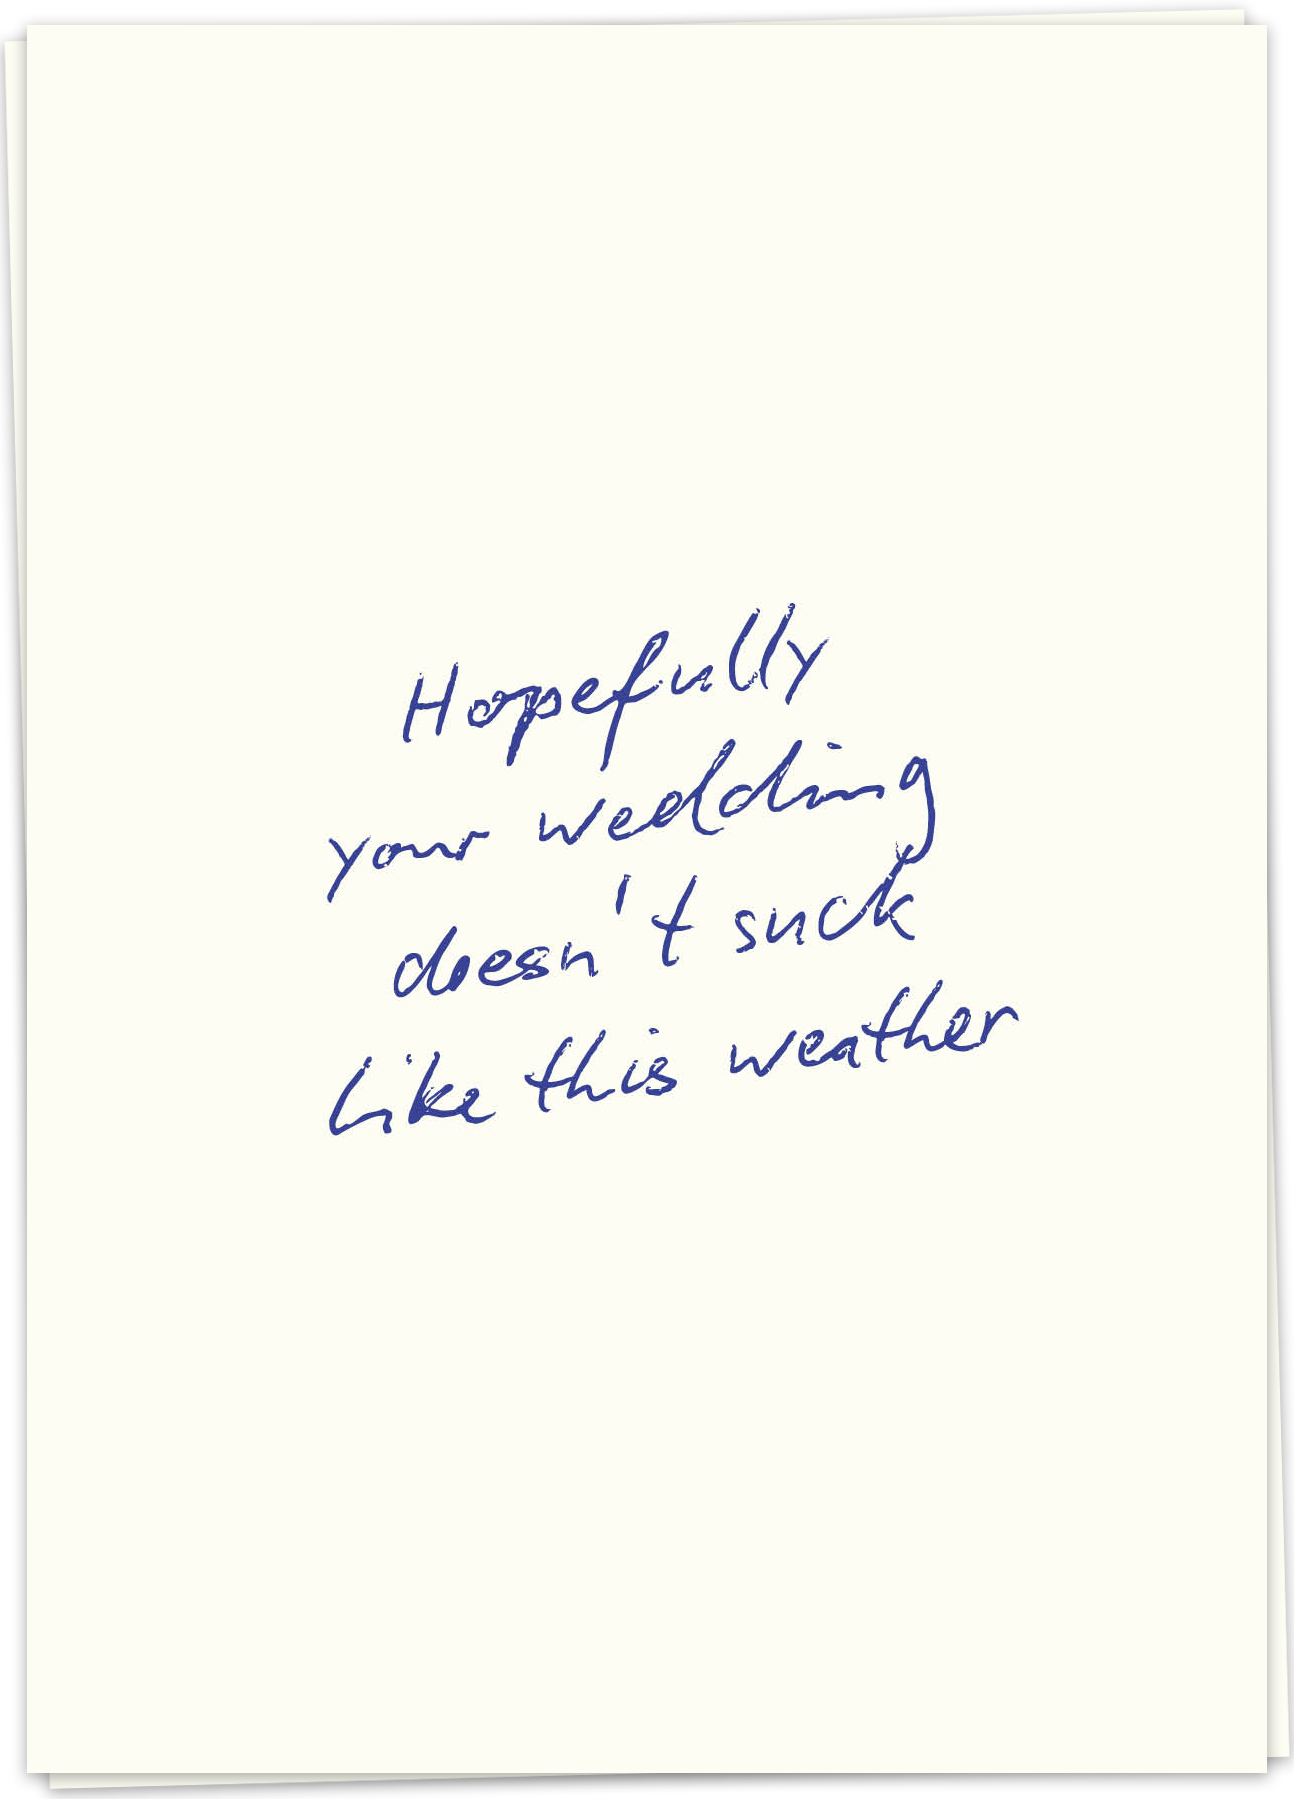 Hopefully
your wedding
doesn't suck
like this weather